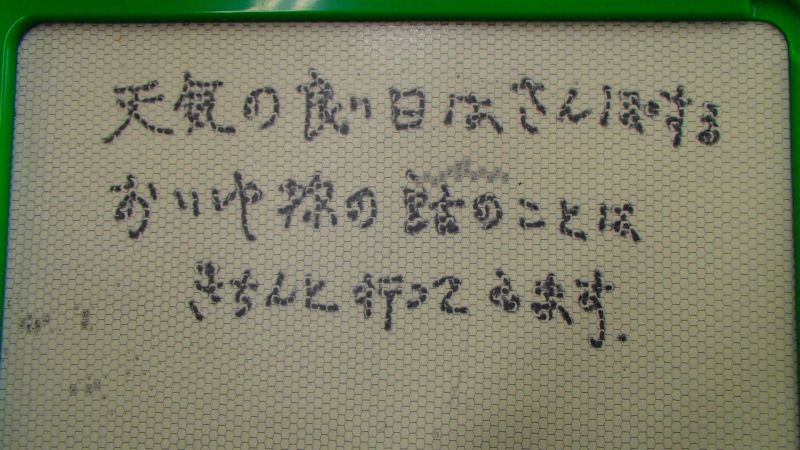 天気の良い日はさんぽする
おいや孫の話のことは
きちんと行って ます.